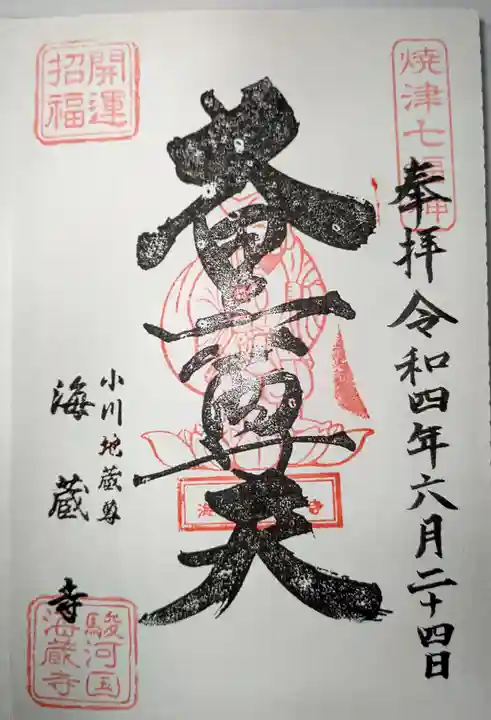 焼津七福神
奉拝 令和四年六月二十四日
開運
招福
尊天
小川地蔵尊
海蔵寺
駿河国
海蔵寺